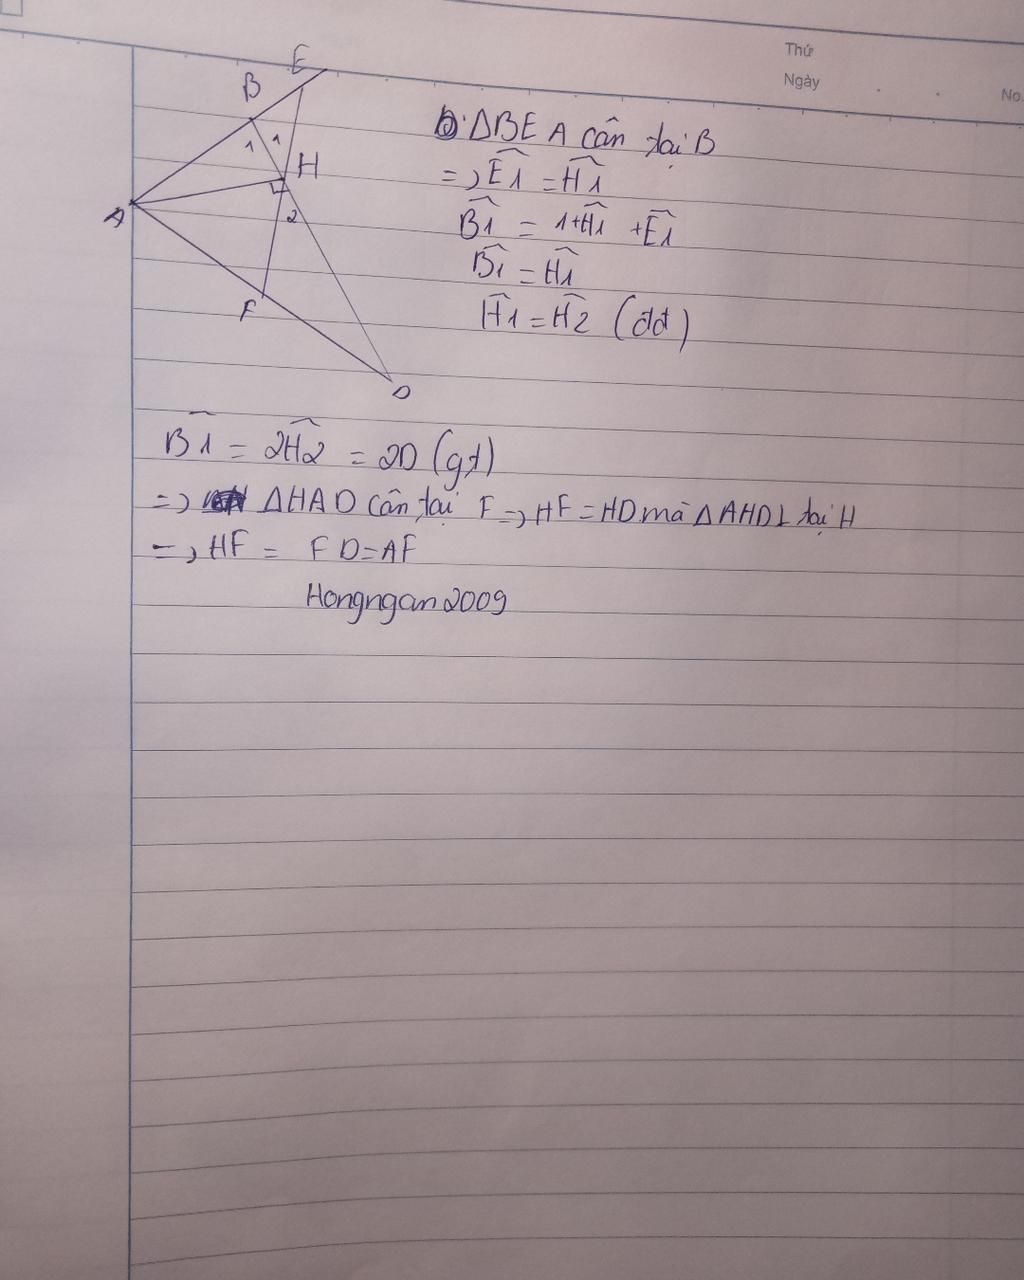 Thứ
Ngày
No.
E
B
1 1
H
A
2
F
D
b. ΔBE A cân tại B
=> Ê1 = Ĥ1
B̂1 = 1+Ĥ1 + Ê1
B̂1 = Ĥ1
Ĥ1 = Ĥ2 (đđ)
B̂1 = 2Ĥ2 = 2D (gt)
=> ΔHAD cân tại F => HF = HD mà ΔAHD⊥ tại H
=> HF = FD = AF
Hongngan2009